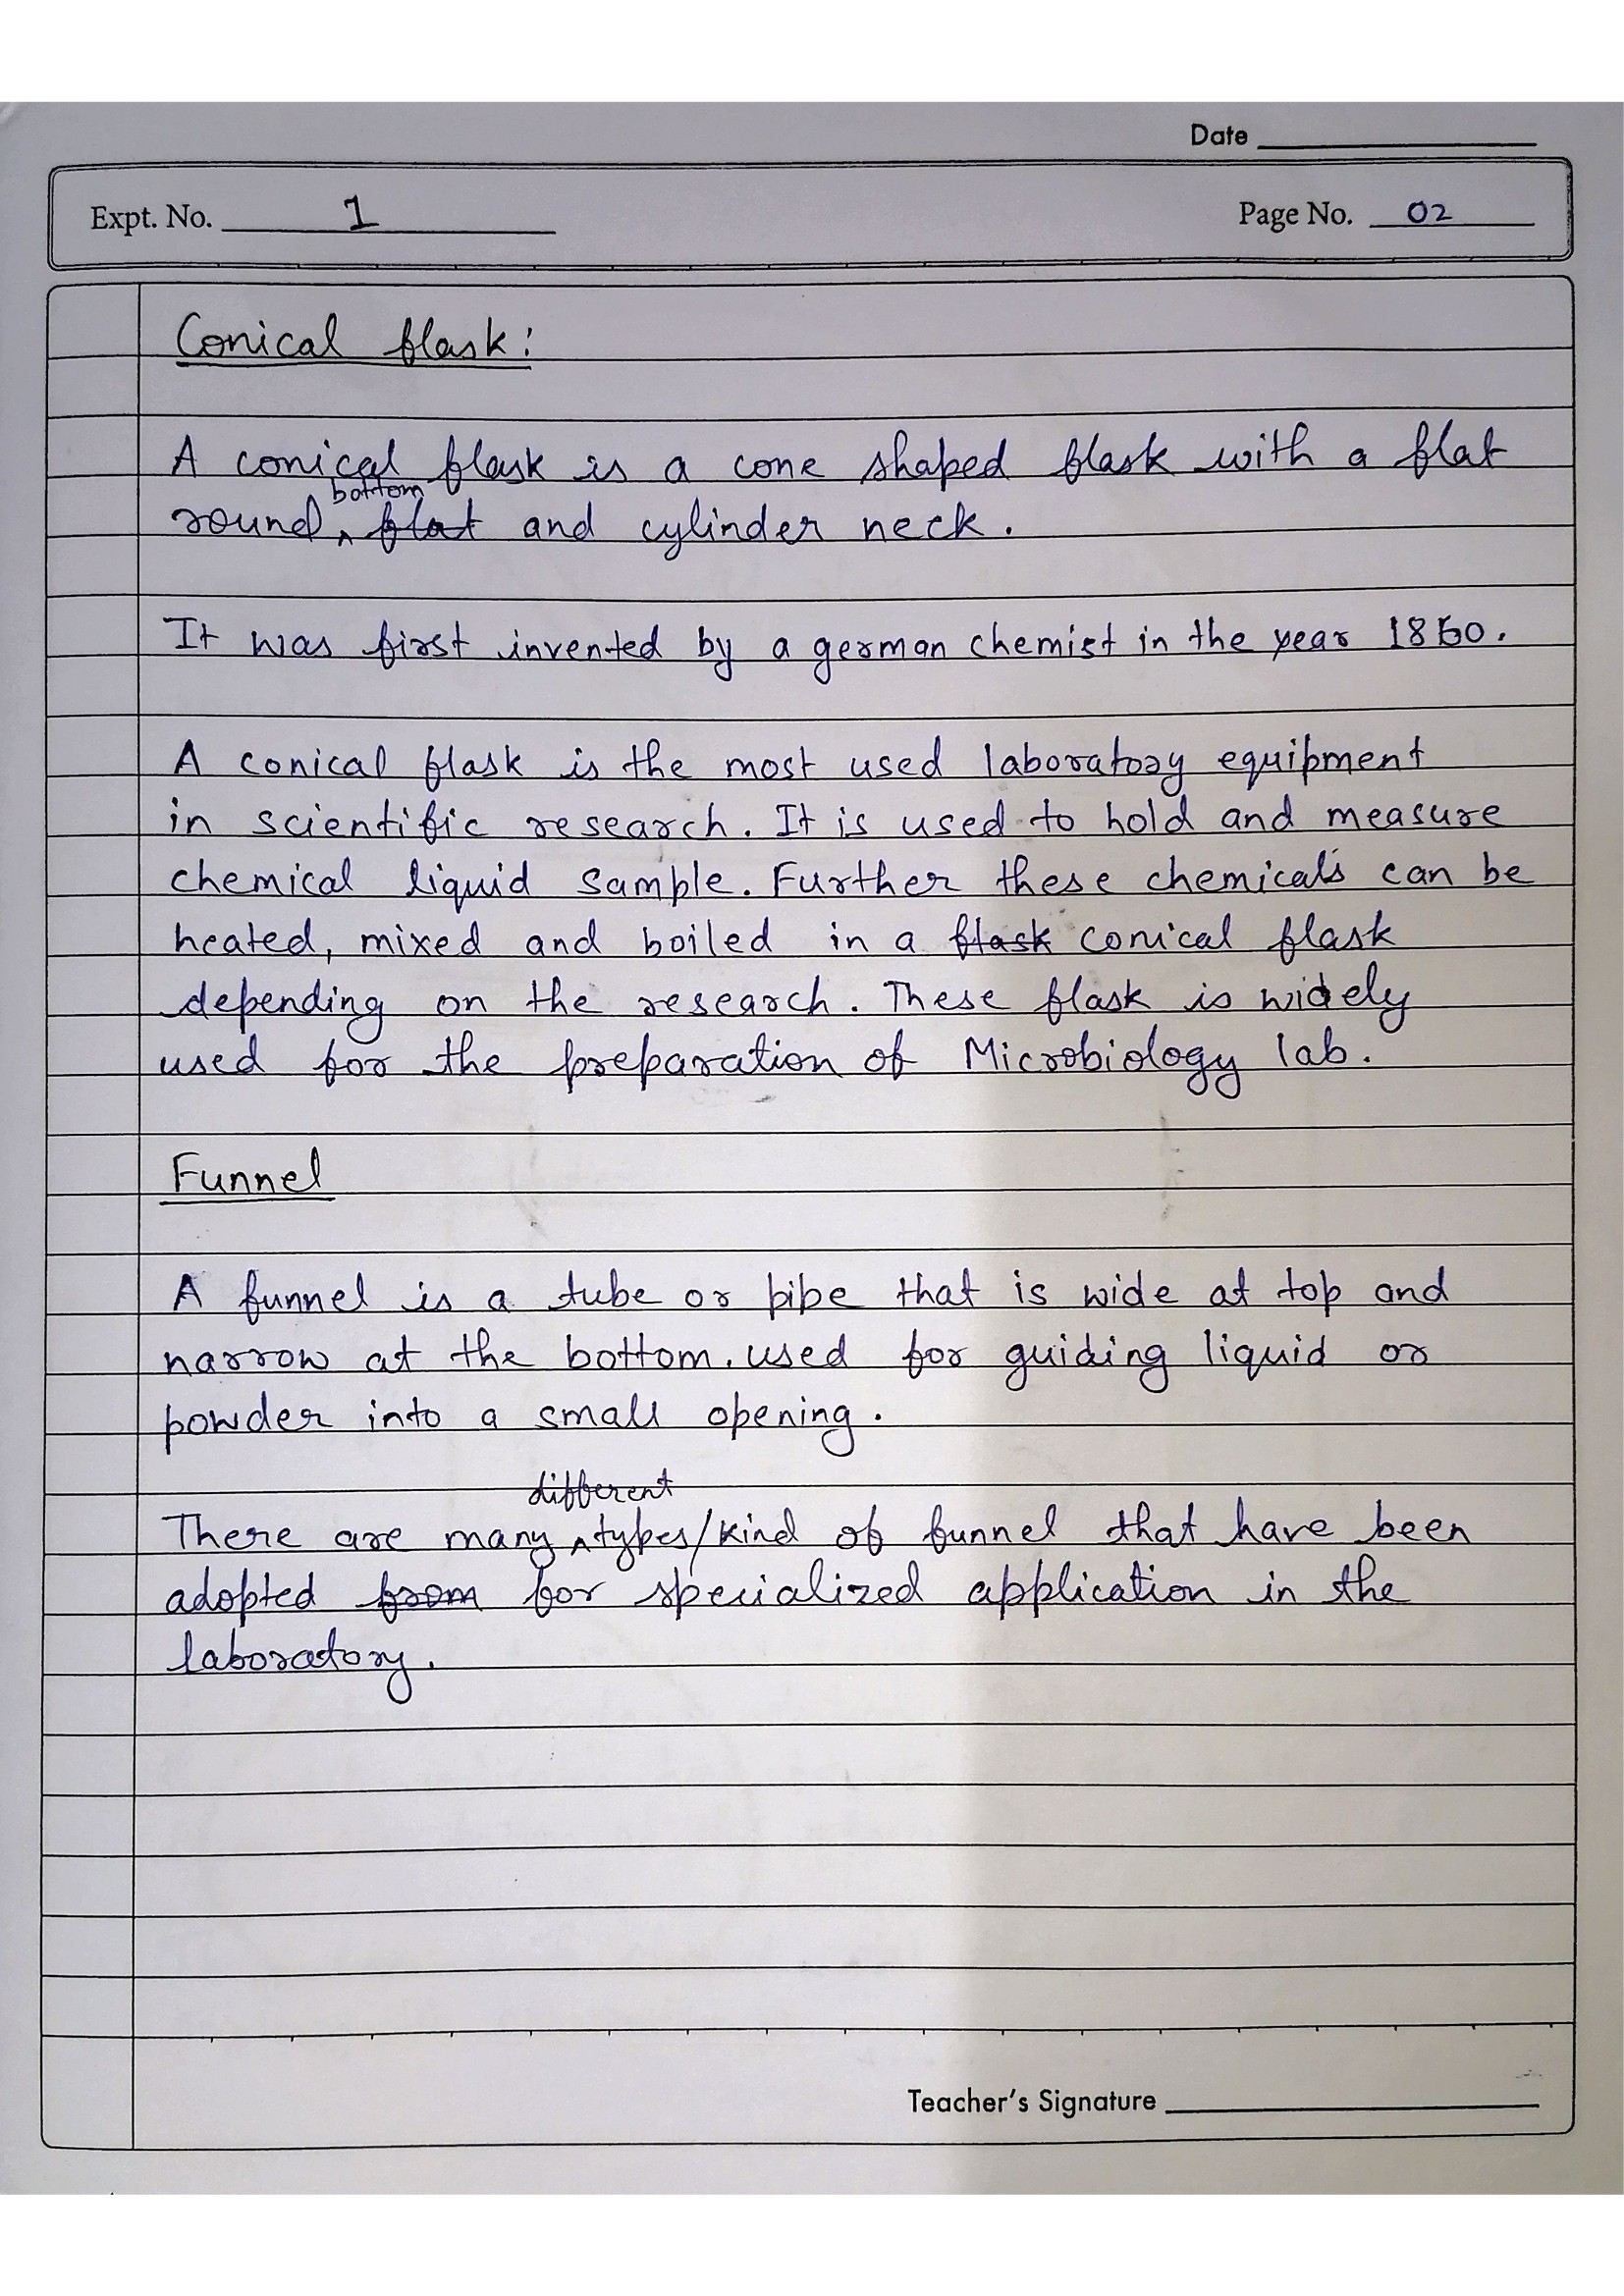 Date
Expt. No. 1
Page No. 02
Conical flask:
A conical flask is a cone shaped flask with a flat
round bottom flat and cylinder neck.
It was first invented by a german chemist in the year 1860.
A conical flask is the most used laboratory equipment
in scientific research. It is used to hold and measure
chemical liquid sample. Further these chemicals can be
heated, mixed and boiled in a flask conical flask
depending on the research. These flask is widely
used for the preparation of Microbiology lab.
Funnel
A funnel is a tube or pipe that is wide at top and
narrow at the bottom. used for guiding liquid or
powder into a small opening.
There are many different types/kind of funnel that have been
adopted from for specialized application in the
laboratory.
Teacher's Signature